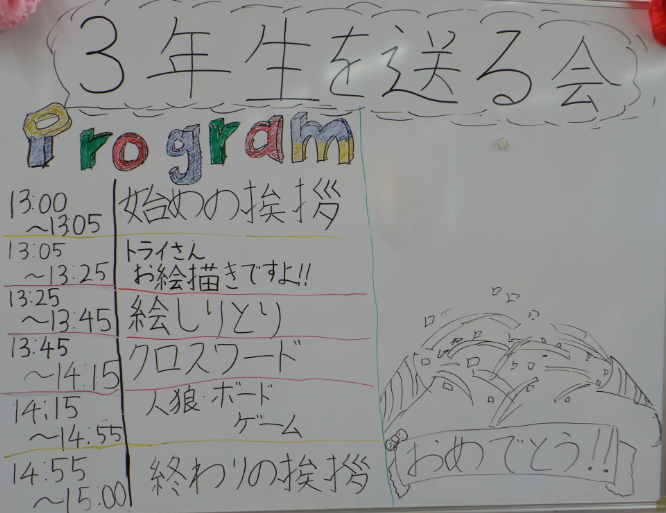 3年生を送る会
Program
13:00
～13:05
始めの挨拶
13:05
～13:25
トライさん
お絵描きですよ!!
13:25
～13:45
絵しりとり
13:45
～14:15
クロスワード
14:15
～14:55
人狼・ボード
ゲーム
14:55
～15:00
終わりの挨拶
おめでとう!!